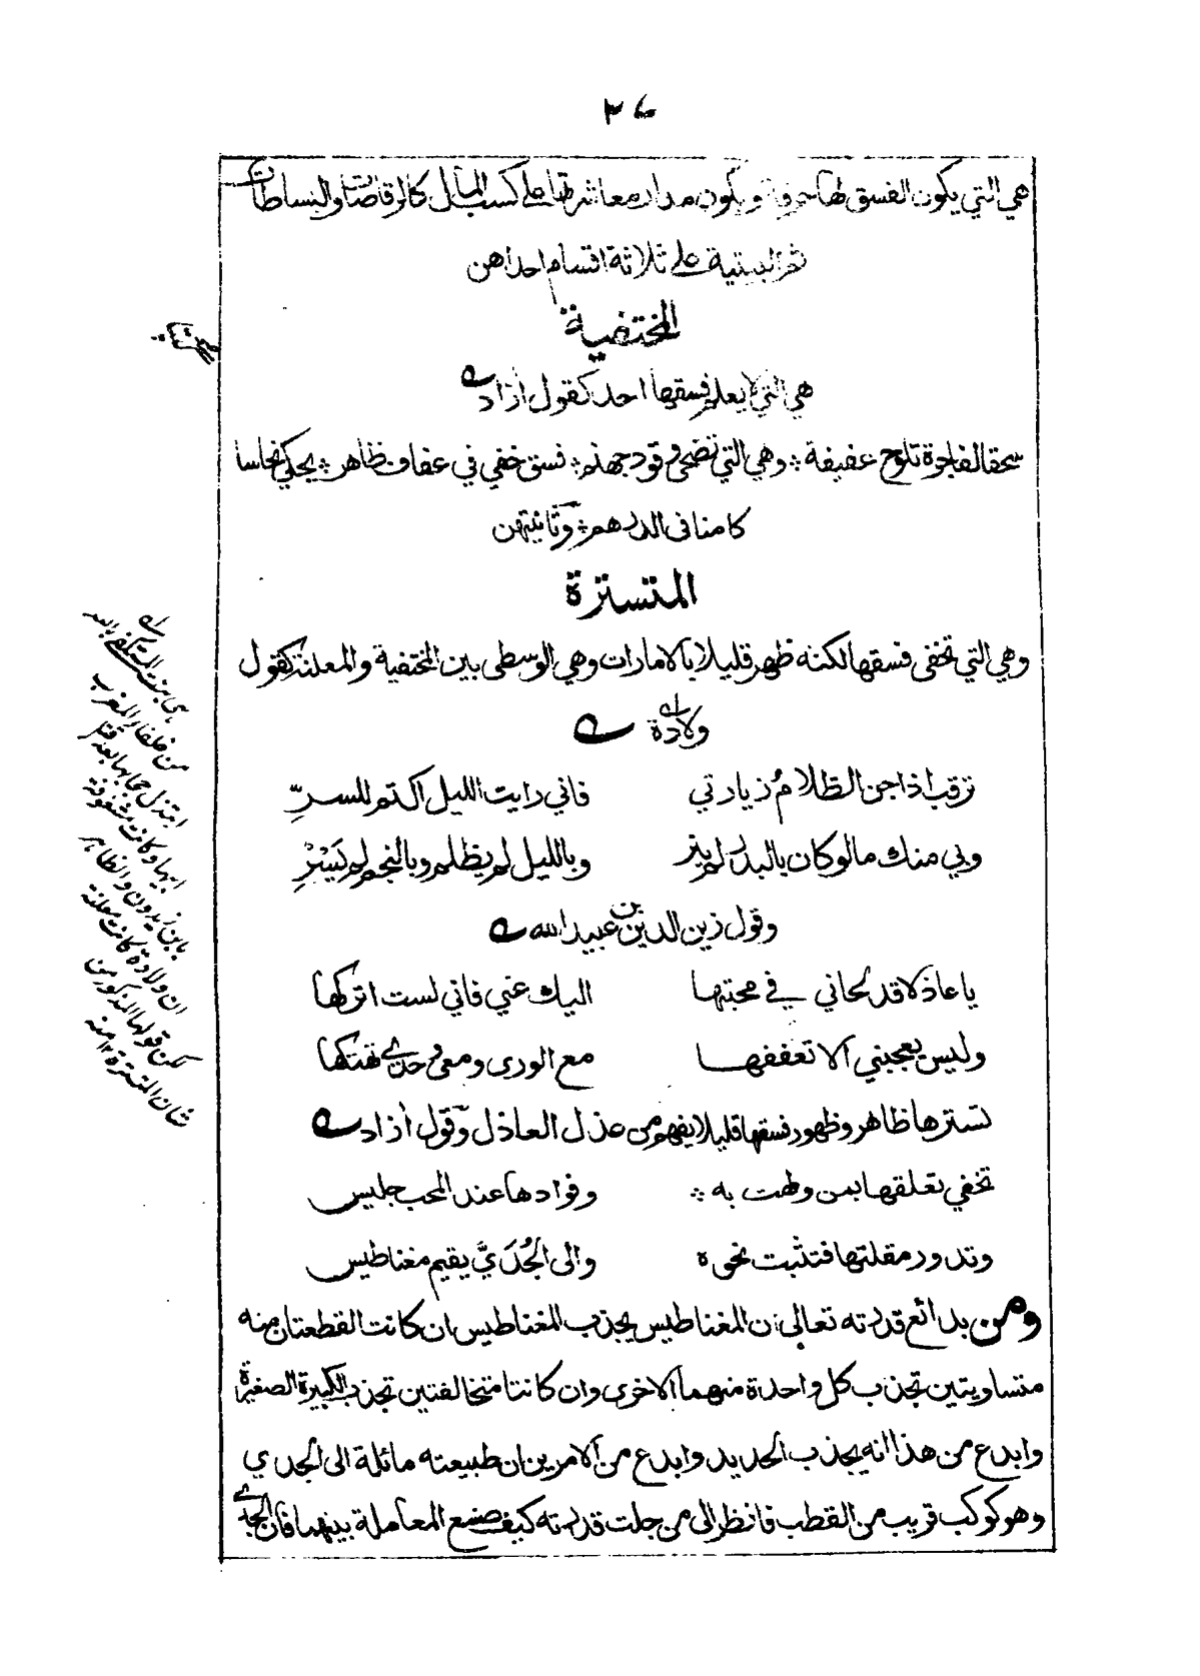 هي التي يكون الفسق لها حرفة ويكون مدار معاشرتها على كسب المال كالرقاصات والبساطات
ثم البيتية على ثلاثة اقسام احداهن
المختفية
هي التي لا يعلم فسقها احد كقول أزاد
سحقا لفاجرة تلوح عفيفة ؞ وهي التي تضحى وقود جهنم ؞ فسق خفي في عفاف ظاهر ؞ يحكي نحاسا
كامنا فى الدرهم ؞ وثانيتهن
المتسترة
وهي التي تخفى فسقها لكنه ظهر قليلا بالامارات وهي الوسطى بين المختفية والمعلنة كقول
ولادة
ترقب اذا جن الظلام زيارتي فاني رايت الليل اكتم للسرِّ
وبي منك ما لو كان بالبدر لم ينر وبالليل لم يظلم وبالنجم لم يَسْرِ
وقول زين الدين بن عبيد الله
يا عاذلا قد لحاني في محبتها اليك عني فاني لست اتركها
وليس يعجبني الا تعففها مع الورى ومعى وحدي تهتكها
تسترها ظاهر وظهور فسقها قليلا يفهم من عذل العاذل وقول أزاد
تخفي تعلقها بمن ولهت به ؞ وفوادها عند المحب جليس
وتدور مقلتها فتثبت نحوه والى الجُدَيَّ يقيم مغناطيس
ومن بدائع قدرته تعالى ان المغناطيس يجذب المغناطيس ان كانت القطعتان منه
متساويتين تجذب كل واحدة منهما الاخرى وان كانتا متخالفتين تجذب الكبيرة الصغيرة
وابدع من هذا انه يجذب الحديد وابدع من الامرين ان طبيعته مائلة الى الجدي
وهو كوكب قريب من القطب فانظر الى من جلت قدرته كيف صنع المعاملة بينهما فان الجدي
هى بنت المستكفى بالله
من خلفاء المغرب
ابتذل حجابها بعد قتل
ابيها وكانت مشغوفة
بابن زيدون والظاهر
ان ولادة كانت معلنة
لكن قولها المذكور من
شان المتسترة ١٢ منه